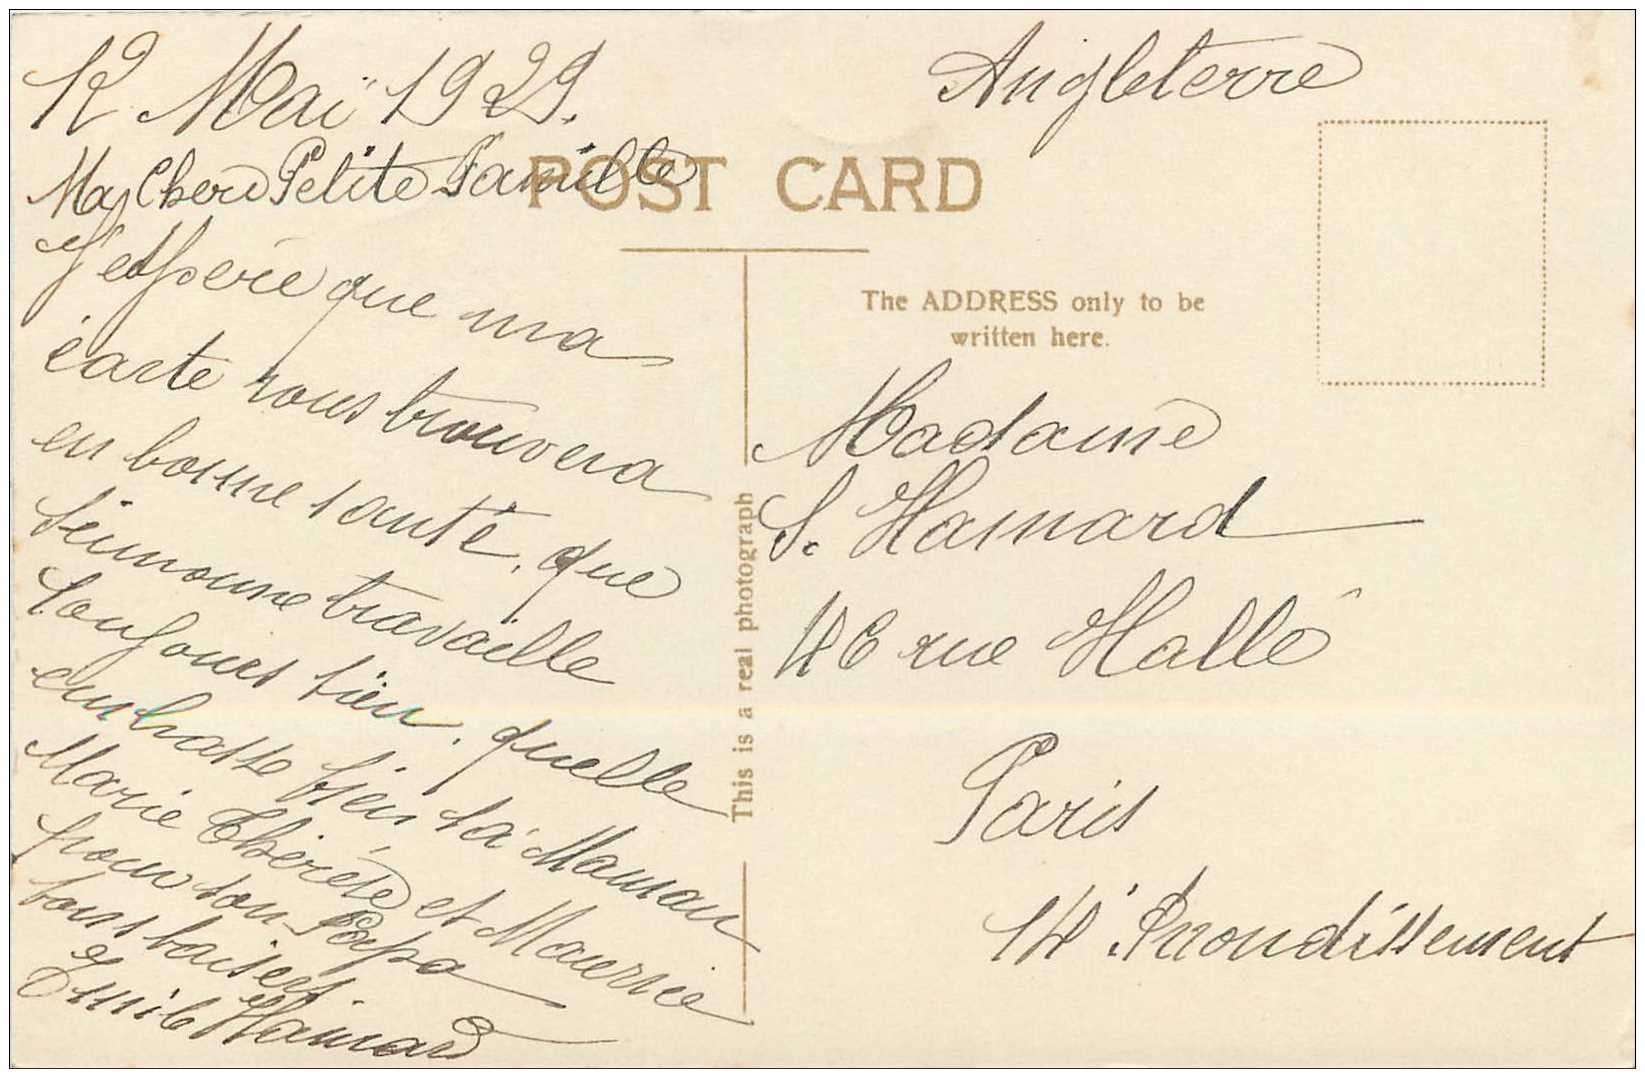 12 Mai 1929.
Ma Chere Petite Famille
J'espere que ma
carte vous trouvera
en bonne santé, que
Simonne travaille
toujours bien, quelle
embrasse bien sa Maman
Marie Thérèse et Maurice
pour son Papa
bons baisers.
Emile Hamard
Angleterre
POST CARD
The ADDRESS only to be
written here.
This is a real photograph
Madame
S. Hamard
46 rue Hallé
Paris
14e Arrondissement